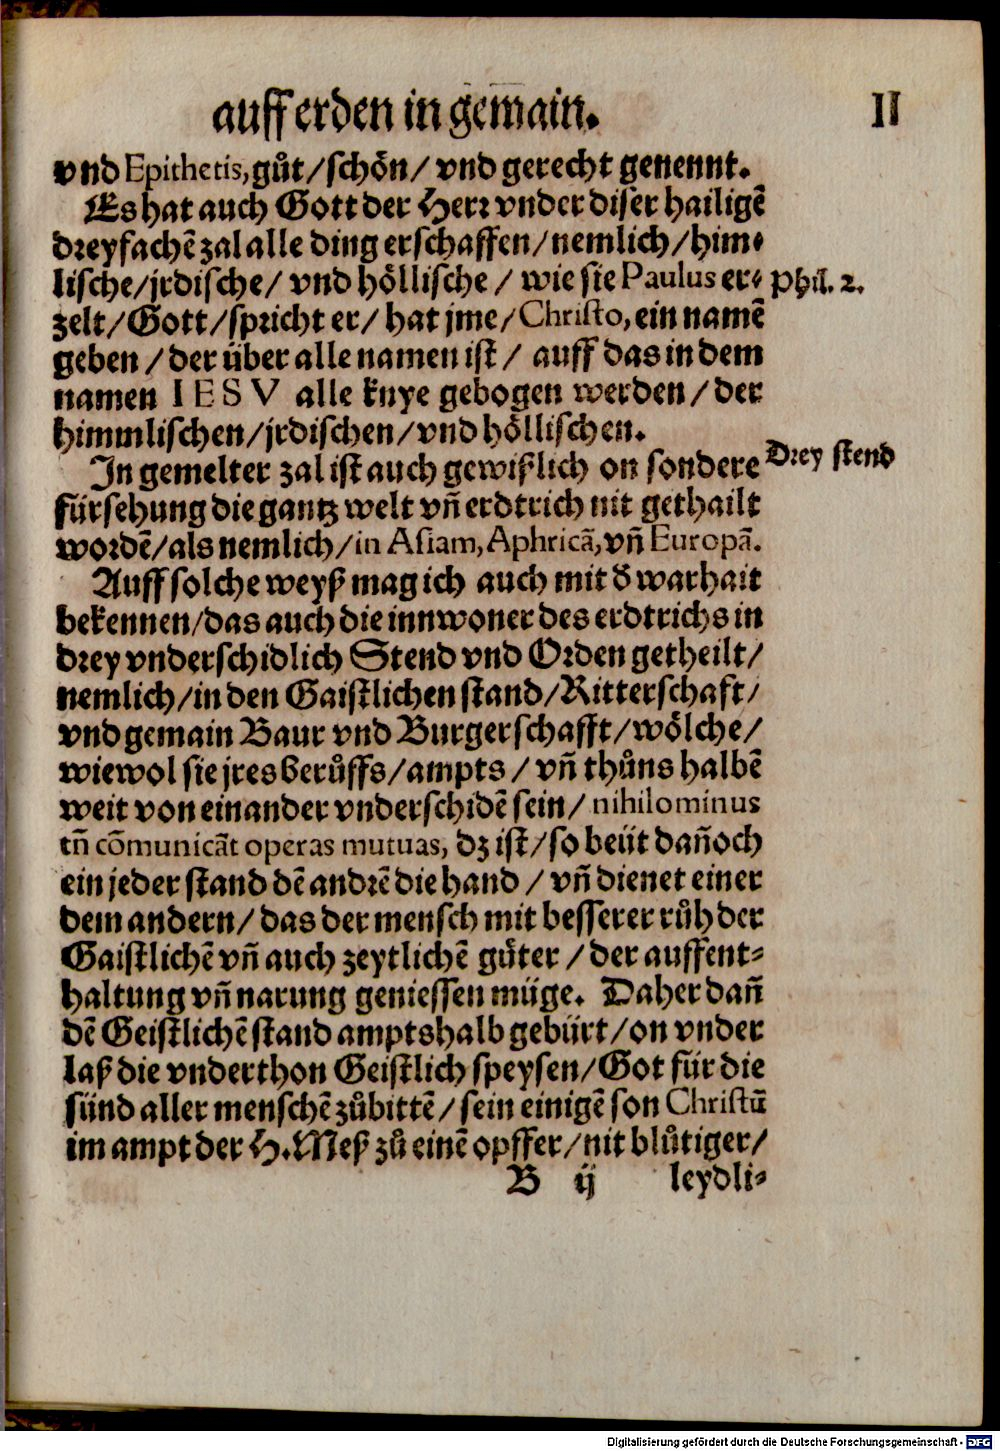 auff erden in gemain. II
vnd Epithetis, gůt/schön/ vnd gerecht genennt.
Es hat auch Gott der Herr vnder diser hailigẽ
dreyfachẽ zal alle ding erschaffen/nemlich/him-
lische/jrdische/ vnd höllische / wie sie Paulus er- Phil. 2.
zelt/Gott/spricht er/ hat jme/Christo, ein namẽ
geben /der über alle namen ist/ auff das in dem
namen IESV alle knye gebogen werden/der
himmlischen/jrdischen/vnd höllischen.
In gemelter zal ist auch gewißlich on sondere Drey stend
fürsehung die gantz welt vñ erdtrich nit gethailt
wordẽ/als nemlich/in Asiam, Aphricã, vñ Europã.
Auff solche weyß mag ich auch mit d warhait
bekennen/das auch die innwoner des erdtrichs in
drey vnderschidlich Stend vnd Orden getheilt/
nemlich/in den Gaistlichen stand/Ritterschaft/
vnd gemain Baur vnd Burgerschafft/wölche/
wiewol sie jres berůffs/ampts / vñ thůns halbẽ
weit von einander vnderschidẽ sein/ nihilominus
tñ cõmunicãt operas mutuas, dz ist/so beüt dañoch
ein jeder stand dẽ andrẽ die hand / vñ dienet einer
dem andern/ das der mensch mit besserer růh der
Gaistlichẽ vñ auch zeytlichẽ güter /der auffent-
haltung vñ narung geniessen müge. Daher dañ
dẽ Geistlichẽ stand amptshalb gebürt/on vnder
laß die vnderthon Geistlich speysen/Got für die
sünd aller menschẽ zůbittẽ/sein einigẽ son Christũ
im ampt der H. Meß zů einẽ opffer/nit blůtiger/
B ij leydli-
Digitalisierung gefördert durch die Deutsche Forschungsgemeinschaft - DFG